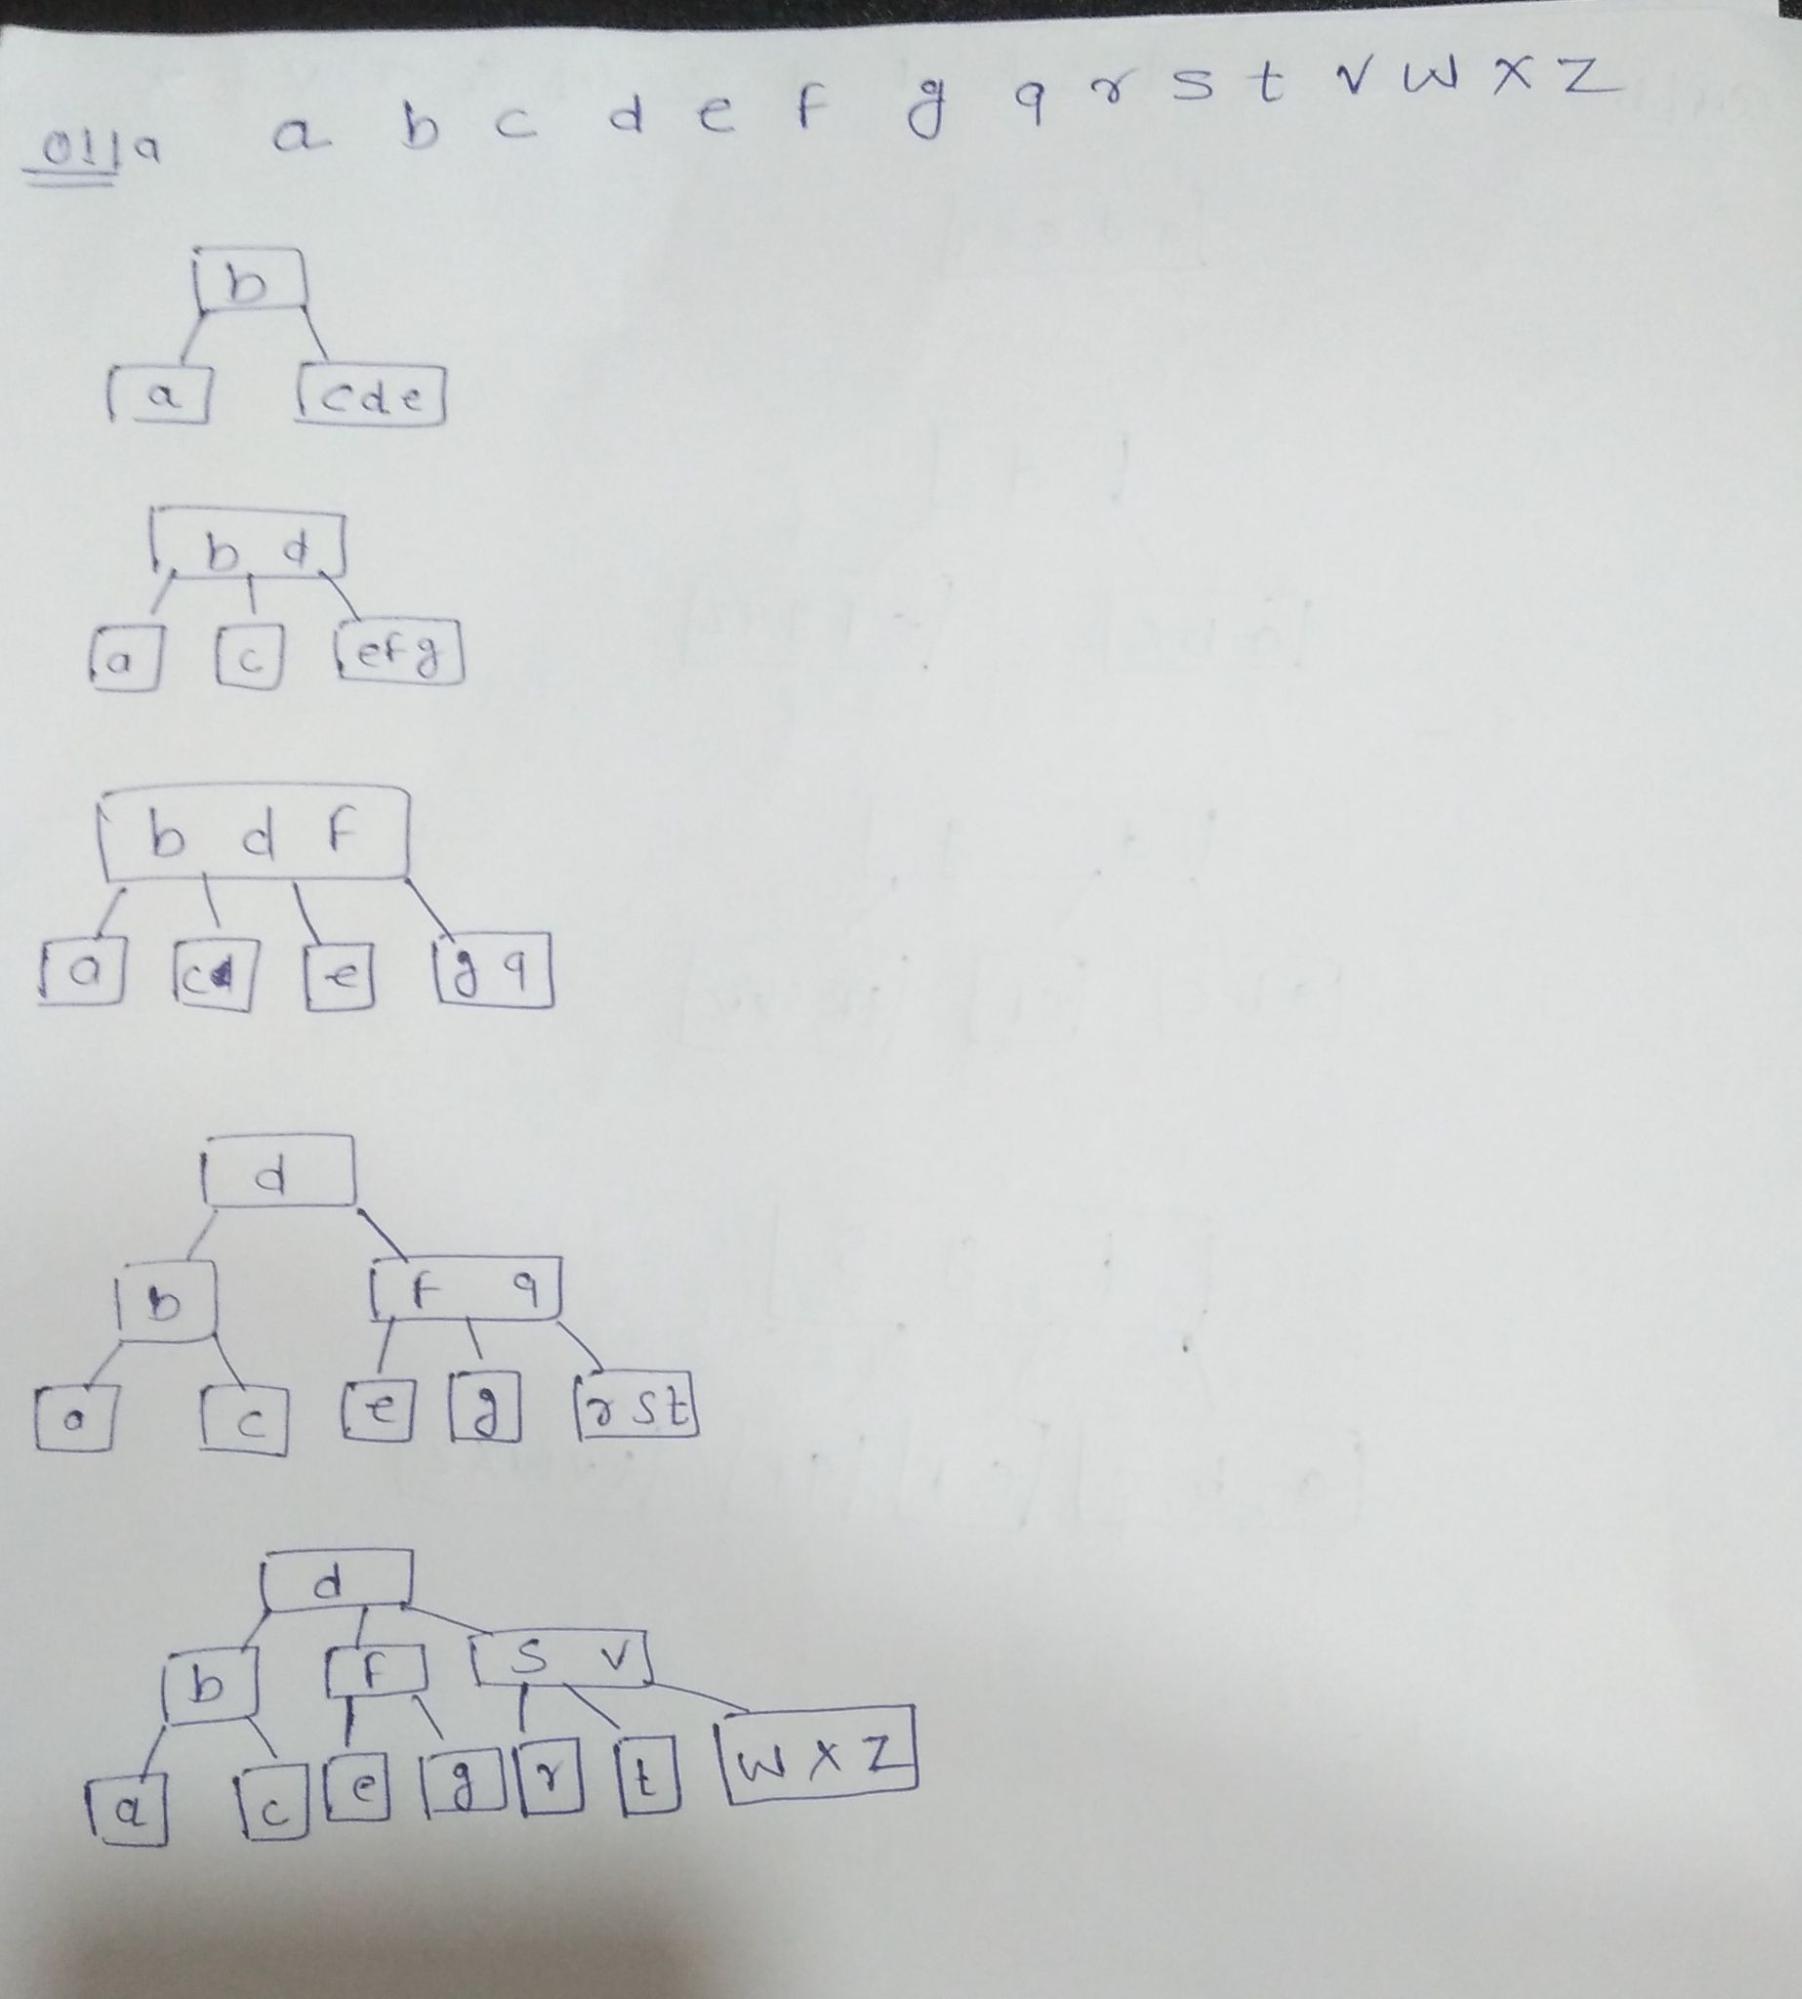 011a a b c d e f g q r s t v w x z
b
a cde
b d
a c efg
b d f
a c e g q
d
b f q
a c e g r s t
d
b f s v
a c e g r t w x z